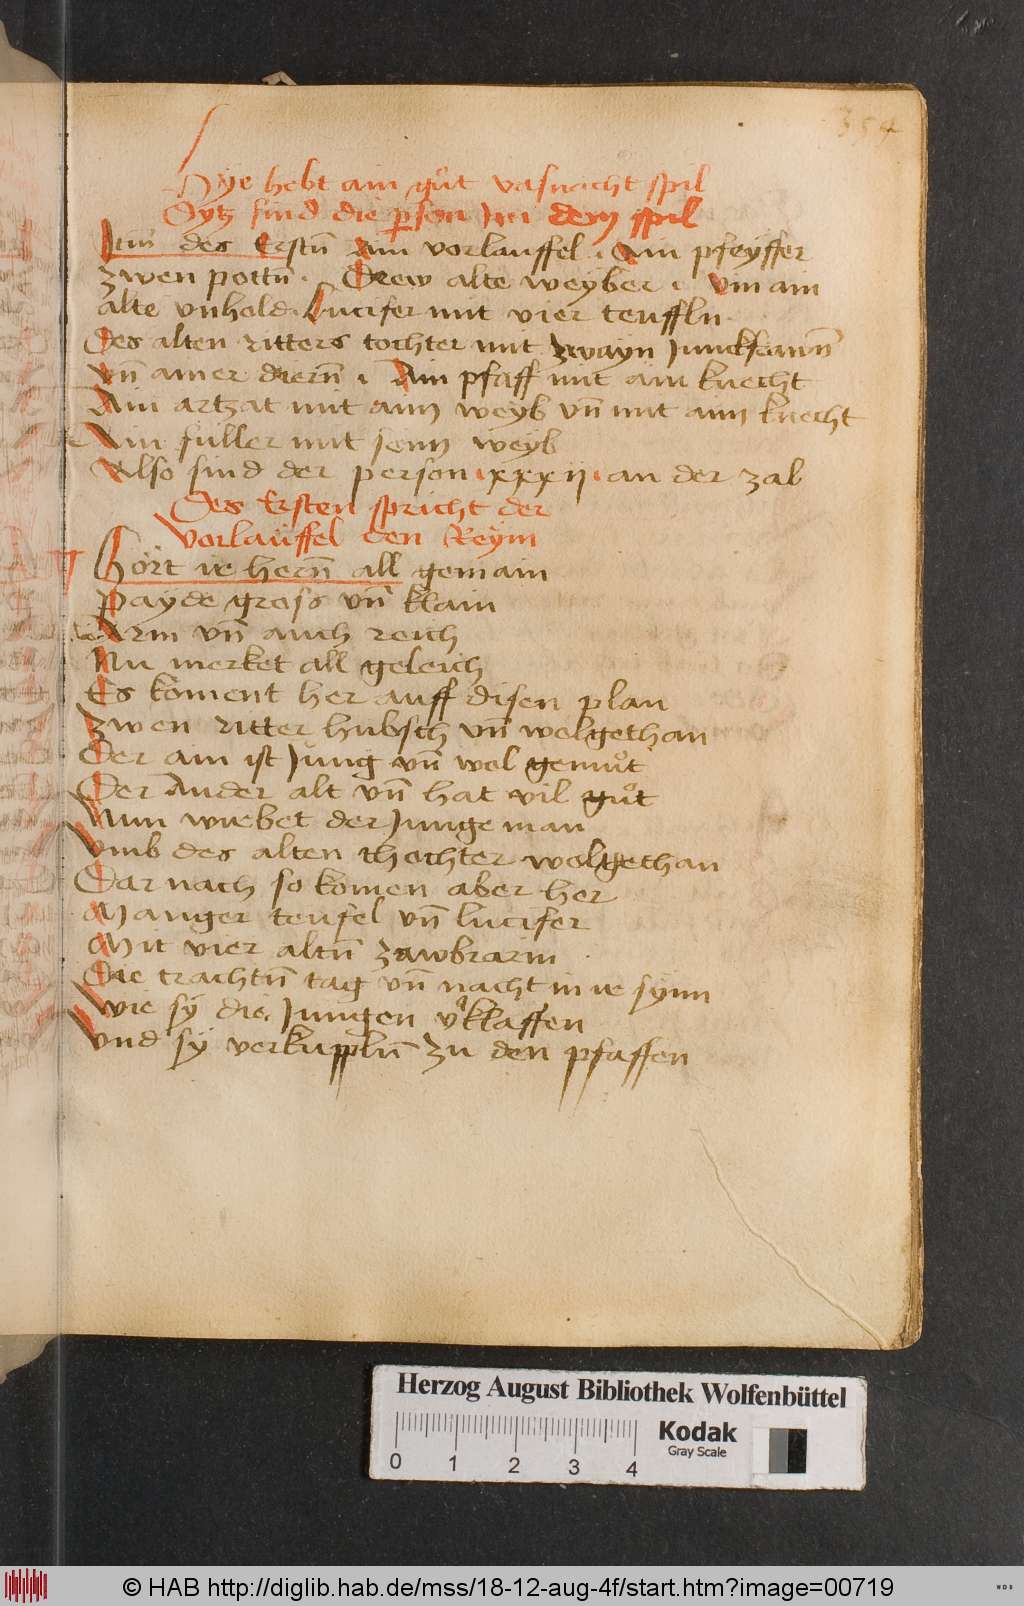 354
Hÿe hebt ain guͦt vasnacht spil
Dytz sind die ꝑson Inn dem spil
Itm̄ des Erstn̄ Ain vorlauffel . Ain pfeyffer
zwen pottn̄ . Drew alte weyber . vnn ain
alte vnhold . Lucifer mit vier teuffln
Des alten ritters tochter mit zwayn Junckfrawn̄
vn̄ ainer diern̄ . Ain pfaff mit ain knecht
Ain artzat mit ainn weyb vn̄ mit ain knecht
Ain füller mit seinn weyb
Also sind der person . xxxij . an der zal
Des Ersten spricht der
vorlauffel den Reÿm
Hört ir hern̄ all gemain
Payde gross vn̄ klain
Arm vn̄ auch reich
Nu merket all geleich
Es koment her auff disen plan
Zwen ritter hubsch vn̄ wolgethan
Der ain ist Jung vn̄ wol gemuͦt
Der Ander alt vn̄ hat vil guͦt
Nun wirbet der Junge man
vmb des alten thochter wolgethan
Dar nach so komen aber her
Manger teufel vn̄ lucifer
Mit vier altn̄ zawbrarin
Die trachtn̄ tag vn̄ nacht in ir synn
Wie sÿ die Jungen v̉klaffen
Vnd sÿ verkuppln̄ zu den pfaffen
Herzog August Bibliothek Wolfenbüttel
Kodak
Gray Scale
0 1 2 3 4
© HAB http://diglib.hab.de/mss/18-12-aug-4f/start.htm?image=00719